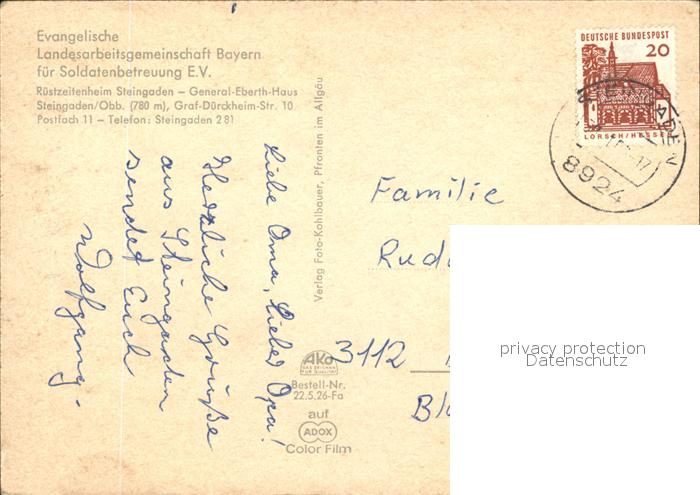 Evangelische
Landesarbeitsgemeinschaft Bayern
für Soldatenbetreuung E.V.
Rüstzeitenheim Steingaden – General-Eberth-Haus
Steingaden/Obb. (780 m), Graf-Dürckheim-Str. 10
Postfach 11 – Telefon: Steingaden 2 81
Liebe Oma, Lieber Opa!
Herzliche Grüße
aus Steingaden
sendet Euch
Wolfgang.
Verlag Foto-Kohlbauer, Pfronten im Allgäu
AKO
DAS ZEICHEN
FÜR QUALITÄT
Bestell-Nr.
22.5.26-Fa
auf
ADOX
Color Film
DEUTSCHE BUNDESPOST
20
LORSCH/HESSEN
8924
Familie
3112
privacy protection
Datenschutz